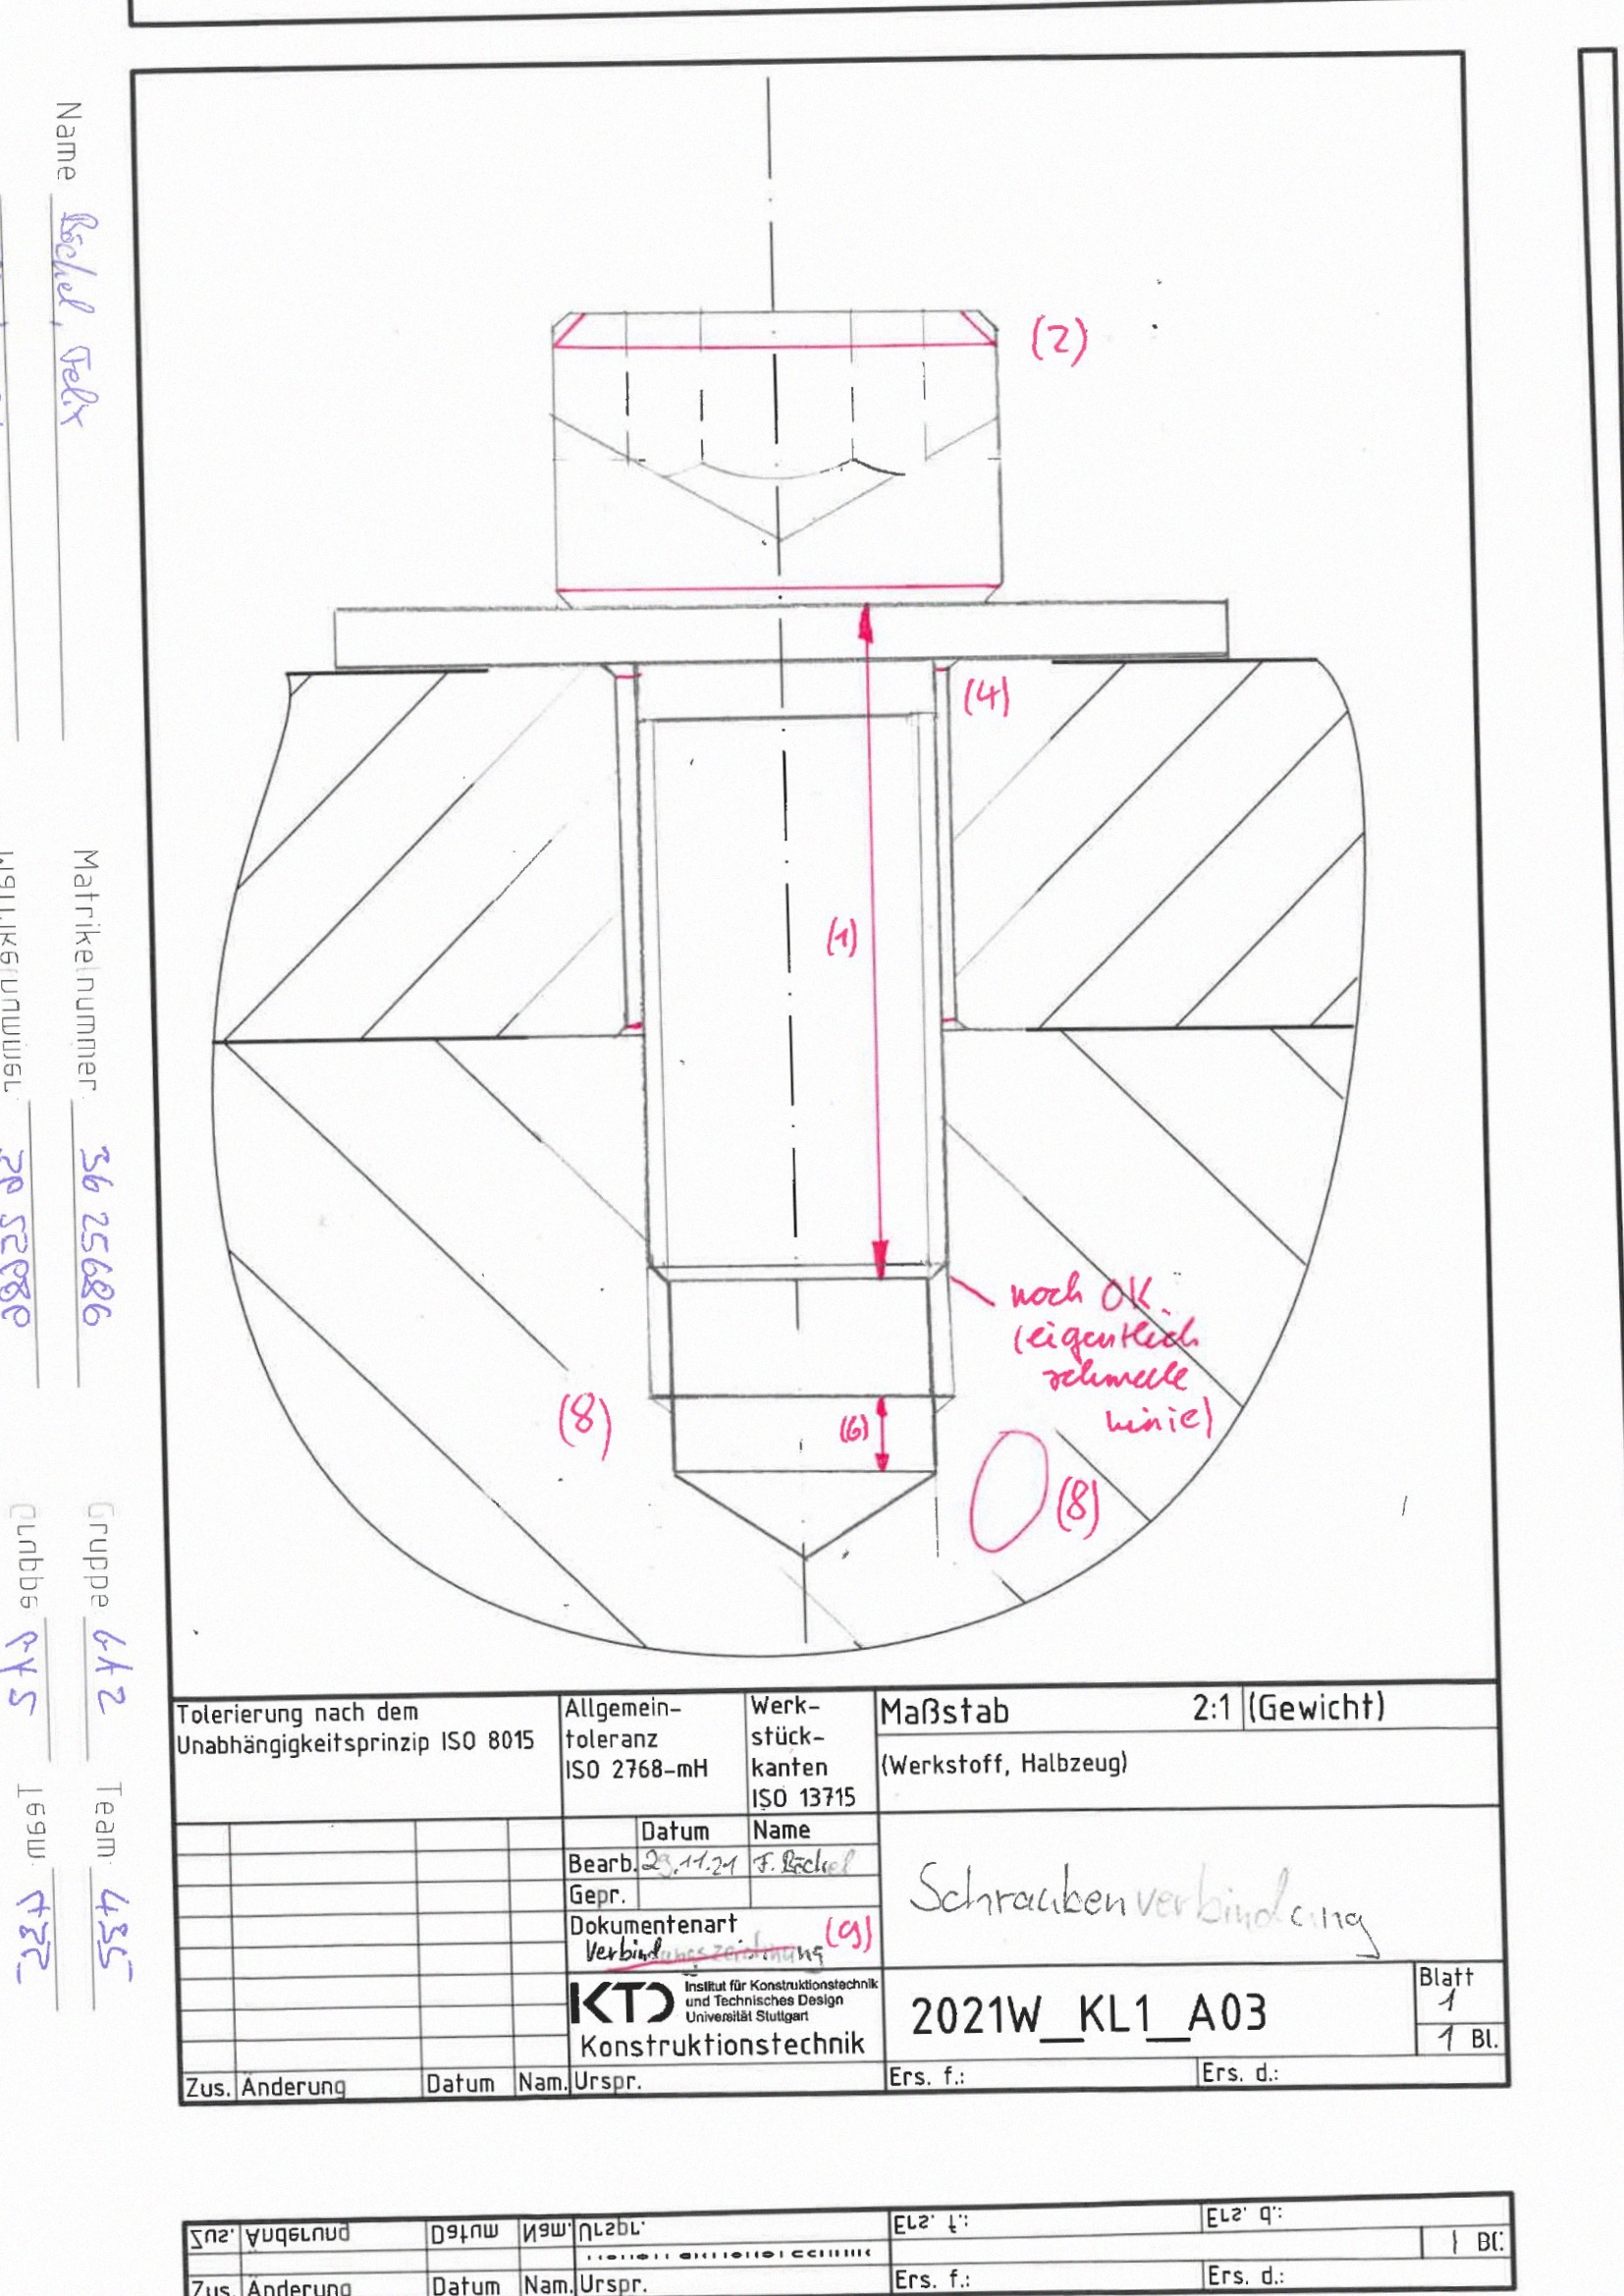 Name Röchel, Felix
Matrikelnummer 36 25686
Gruppe
Team 435
(2)
(4)
(1)
noch OK.
(eigentlich
schmale
Linie)
(8)
(6)
(8)
Tolerierung nach dem
Unabhängigkeitsprinzip ISO 8015
Allgemein-
toleranz
ISO 2768-mH
Werk-
stück-
kanten
ISO 13715
Maßstab 2:1 (Gewicht)
(Werkstoff, Halbzeug)
Datum Name
Bearb. 29.11.21 F. Röchel
Gepr.
Dokumentenart
Verbindungszeichnung (9)
Schraubenverbindung
KTD Institut für Konstruktionstechnik
und Technisches Design
Universität Stuttgart
Konstruktionstechnik
2021W_KL1_A03
Blatt
1
1 Bl.
Zus. Änderung Datum Nam. Urspr. Ers. f.: Ers. d.:
Zus. Änderung Datum Nam. Urspr. Ers. f.: Ers. d.:
Bl.
Zus. Änderung Datum Nam. Urspr. Ers. f.: Ers. d.: